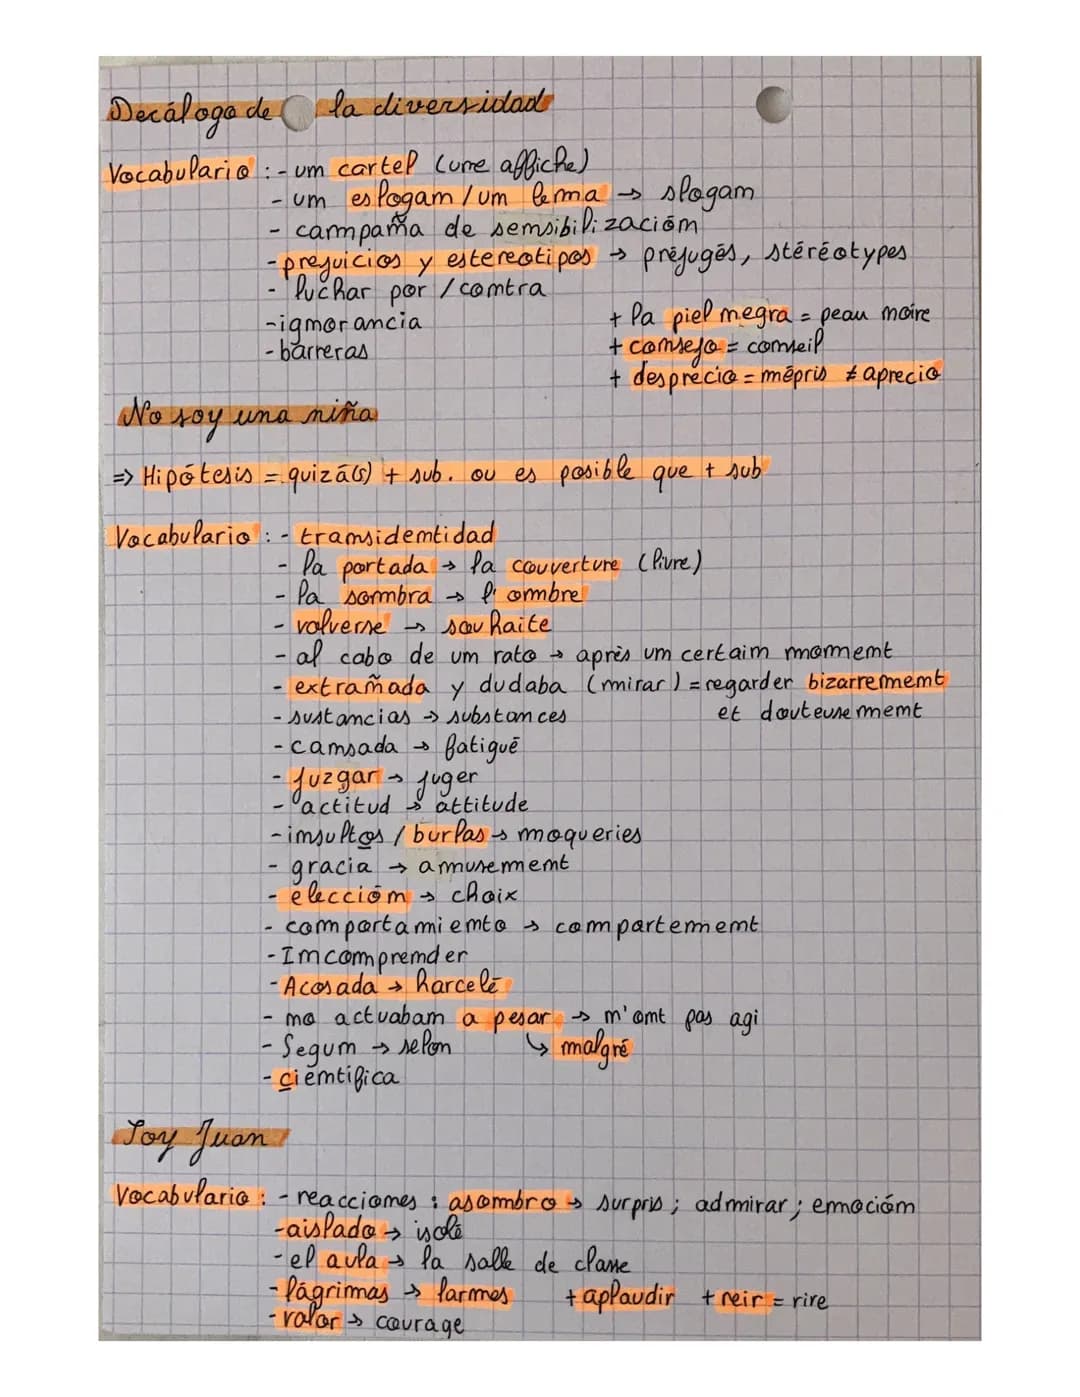 Decálogo de la diversidad
Vocabulario : - un cartel (une affiche)
- un eslogan / un lema → slogan
- campaña de sensibilización
- prejuicios y estereotipos → préjugés, stéréotypes
- luchar por / contra
- ignorancia
- barreras
+ la piel negra = peau noire
+ consejo = conseil
+ desprecio = mépris ≠ aprecio
No soy una niña
⇒ Hipótesis = quizá(s) + sub. ou es posible que + sub
Vocabulario : - transidentidad
- la portada → la couverture (livre)
- la sombra → l'ombre
- volverse → souhaite
- al cabo de un rato → après un certain moment
- extrañada y dudaba (mirar) = regarder bizarrement
et douteusement
- sustancias → substances
- cansada → fatigué
- juzgar → juger
- actitud → attitude
- insultos / burlas → moqueries
- gracia → amusement
- elección → choix
- comportamiento → comportement
- Incomprender
- Acosada → harcelé
- no actuaban a pesar → n'ont pas agi
↳ malgré
- Segun → selon
- científica
Soy Juan
Vocabulario : - reacciones : asombro → surpris ; admirar ; emoción
- aislado → isolé
- el aula → la salle de classe
- lágrimas → larmes + aplaudir + reir = rire
- valor → courage